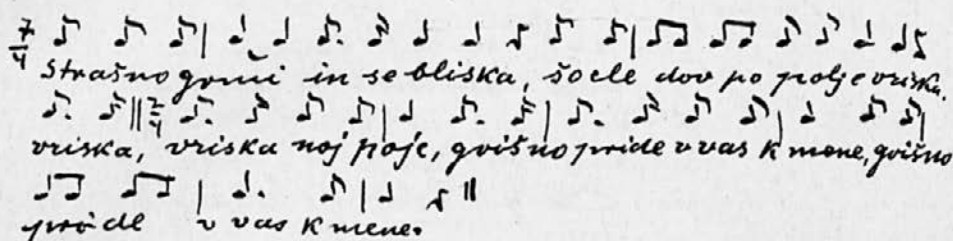 7/4
Strašno grmi in se bliska, šocle dov po polje vriska.
2/4
vriska, vriska noj poje, gvišno pride v vas k mene, gvišno
pride v vas k mene.